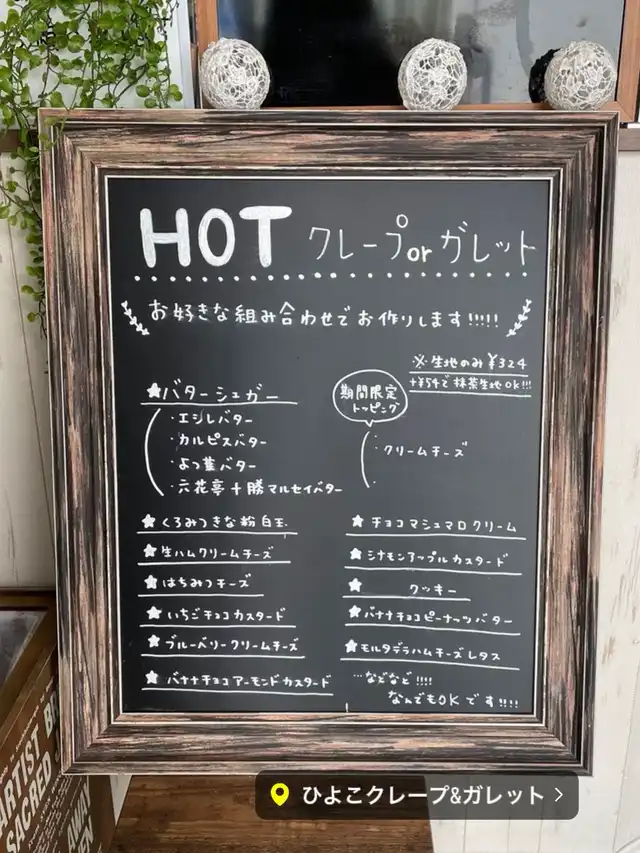 HOT クレープorガレット
お好きな組み合わせでお作りします!!!!!
※生地のみ¥324
+¥54で抹茶生地OK!!!
★バターシュガー
・エシレバター
・カルピスバター
・よつ葉バター
・六花亭十勝マルセイバター
期間限定
トッピング
・クリームチーズ
★くろみつきな粉白玉
★生ハムクリームチーズ
★はちみつチーズ
★いちごチョコカスタード
★ブルーベリークリームチーズ
★バナナチョコアーモンドカスタード
★チョコマシュマロクリーム
★シナモンアップルカスタード
★クッキー
★バナナチョコピーナッツバター
★モルタデラハムチーズレタス
…などなど!!!!
なんでもOKです!!!!
ARTIST
SACRED
ひよこクレープ&ガレット >